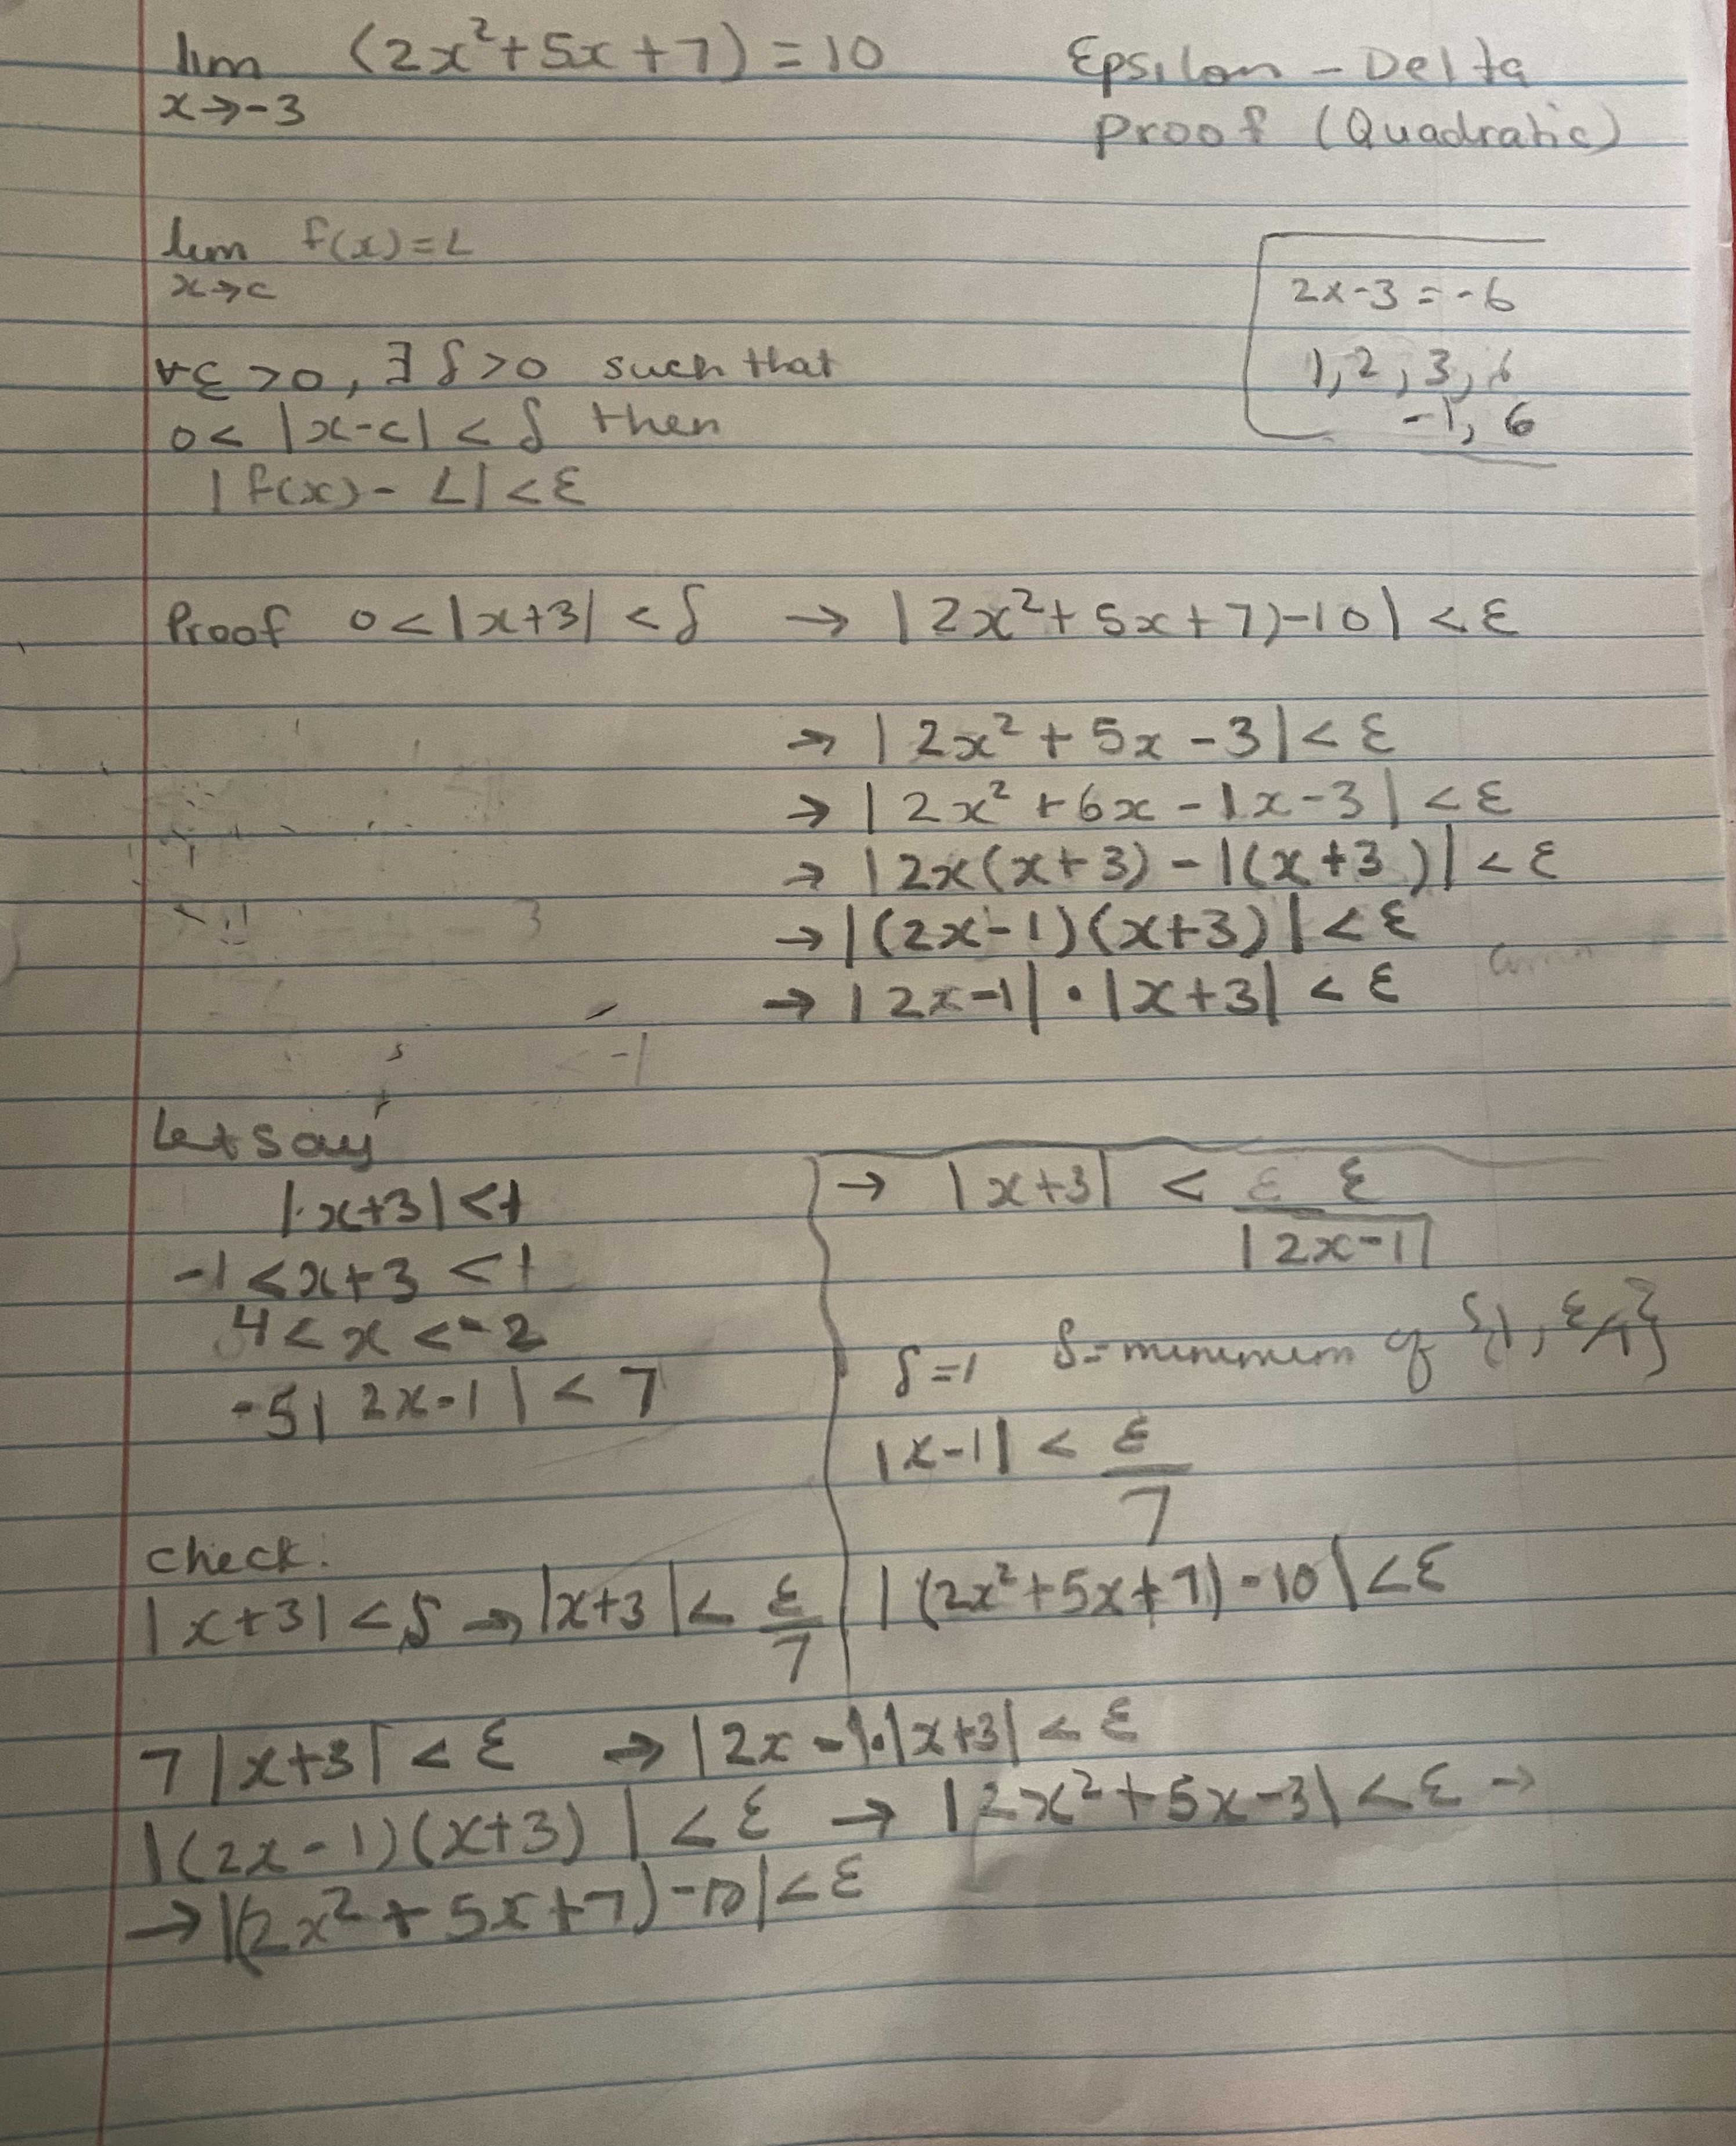 lim (2x²+5x+7) = 10
x→-3
Epsilon - Delta
Proof (Quadratic)
lim f(x) = L
x→c
2x-3 = -6
1, 2, 3, 6
-1, 6
∀ε >0, ∃ δ >0 such that
0< |x-c| < δ then
|f(x) - L| < ε
Proof 0 < |x+3| < δ → |2x²+5x+7)-10| < ε
→ |2x² + 5x - 3| < ε
→ |2x² + 6x - 1x - 3| < ε
→ |2x(x+3) - 1(x+3)| < ε
→ |(2x-1)(x+3)| < ε
→ |2x-1| • |x+3| < ε
Let say
|x+3| < 1
-1 < x+3 < 1
4 < x < -2
-5| 2x-1 | < 7
→ |x+3| < ε ε
|2x-1|
δ=1 δ= minimum of {1, ε/7}
|x-1| < ε/7
check:
|x+3| < δ → |x+3| < ε/7
|(2x²+5x+7) - 10| < ε
7|x+3| < ε → |2x-1|•|x+3| < ε
|(2x-1)(x+3)| < ε → |2x²+5x-3| < ε →
→ |(2x²+5x+7)-10| < ε